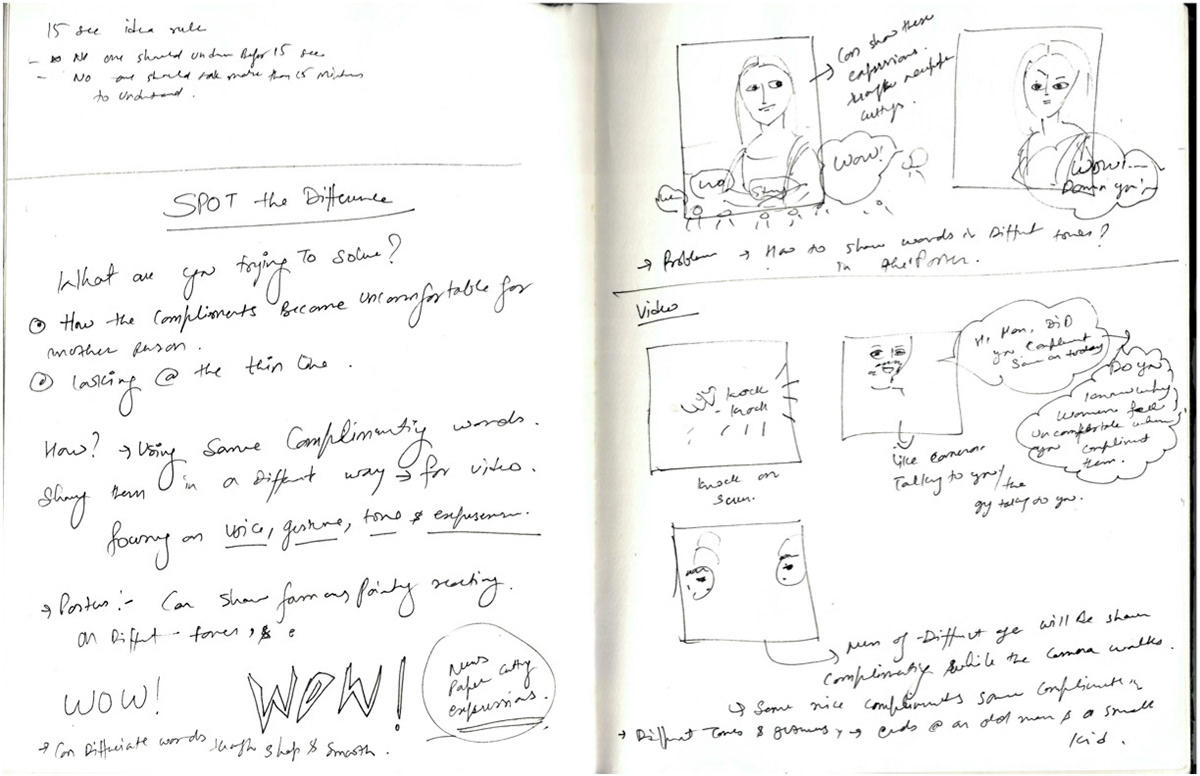 15 sec idea rule
- No one should undern befor 15 sec
- No one should take more than 15 minutes
to understand.
SPOT the Difference
What are you trying To solve?
① How the compliments Become uncomfortable for
another person.
② Talking @ the thin line.
How? → Using Same Complimenting words.
Showing them in a Diffrent way → for video.
focusing on voice, gesture, tone & expression.
→ Posters:- Can show famous painting reacting
on Diffrent tones, &
WOW!
WOW!
News
Paper cutting
expressions.
→ Can Differciate words through sharp & smooth.
Can show these
expressions
through newspaper
cuttings.
WOW!
WOW!
Damn you!
→ Problem → How to show words in Diffrent tones?
in the Poster.
Video
knock
- knock
knock on
screen.
Hi Man, DiD
you compliment
Someone today
Do you
know why
women feel
uncomfortable when
you compliment
them.
Like camera
Talking to you/
the
guy talking to you.
Men of Diffrent age will Be shown
Complimenting while the camera walks.
↳ Some nice compliments some compliments in
Diffrent Tones & gestures, → ends @ an old man & a small
kid.